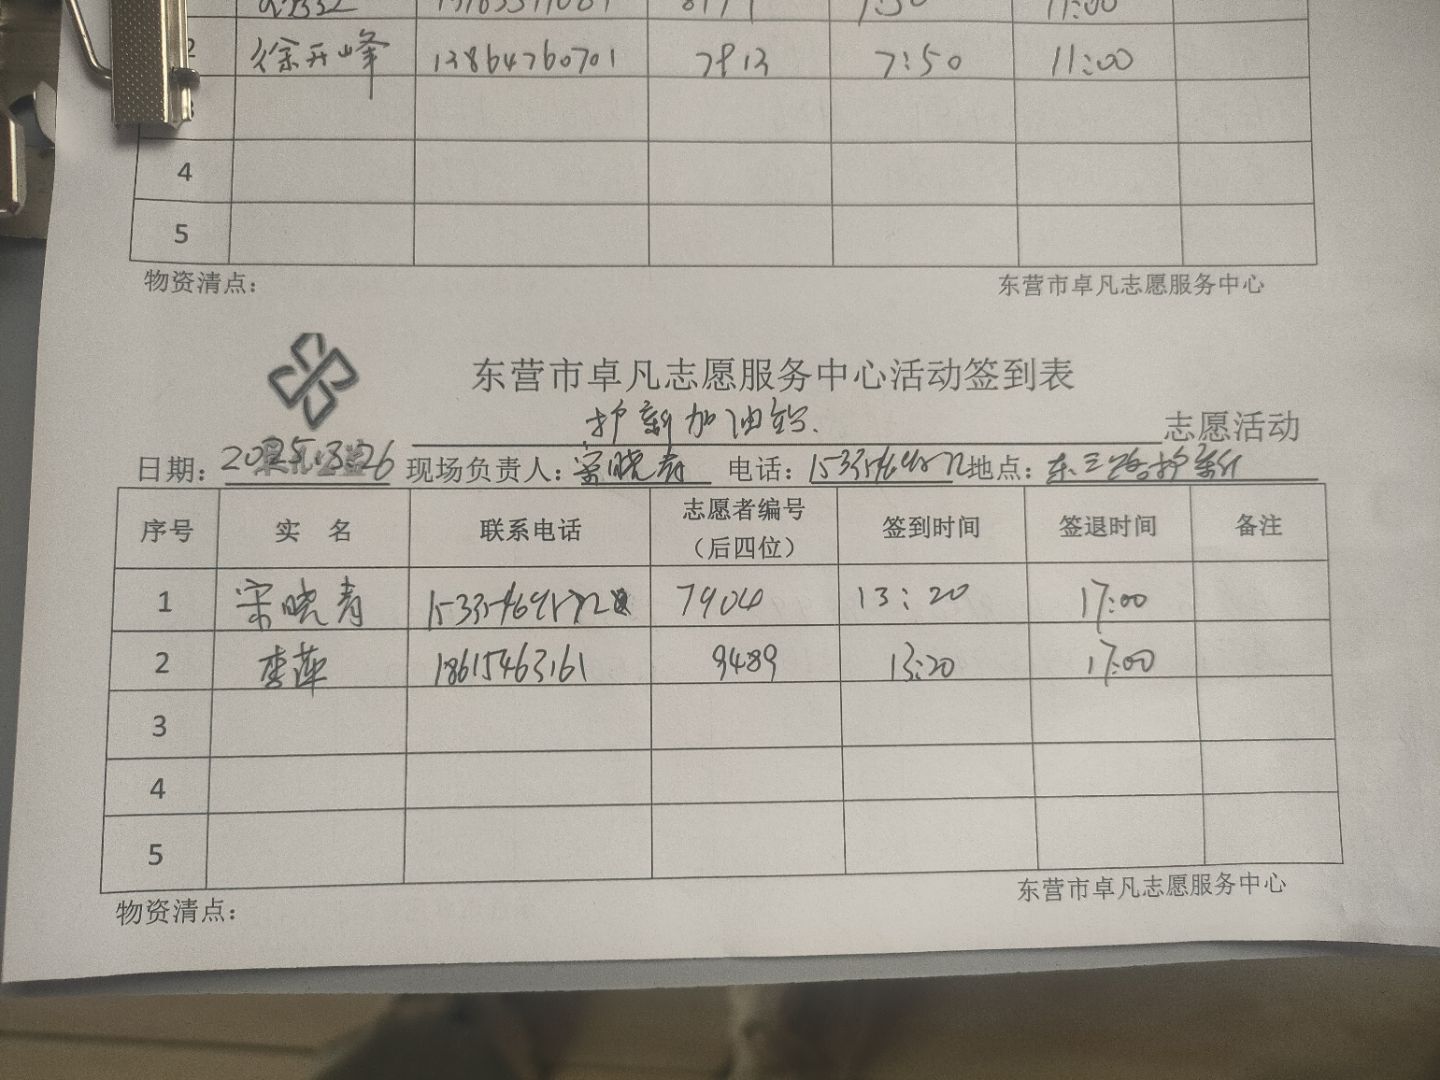 2 徐开峰 13864760701 7913 7:50 11:00
4
5
物资清点： 东营市卓凡志愿服务中心
东营市卓凡志愿服务中心活动签到表
护薪加油站 志愿活动
日期： 现场负责人：宋晓青 电话： 地点：东三路护薪
序号 实 名 联系电话 志愿者编号（后四位） 签到时间 签退时间 备注
1 宋晓青 7904 13:20 17:00
2 李萍 18615463161 9489 13:20 17:00
3
4
5
物资清点： 东营市卓凡志愿服务中心